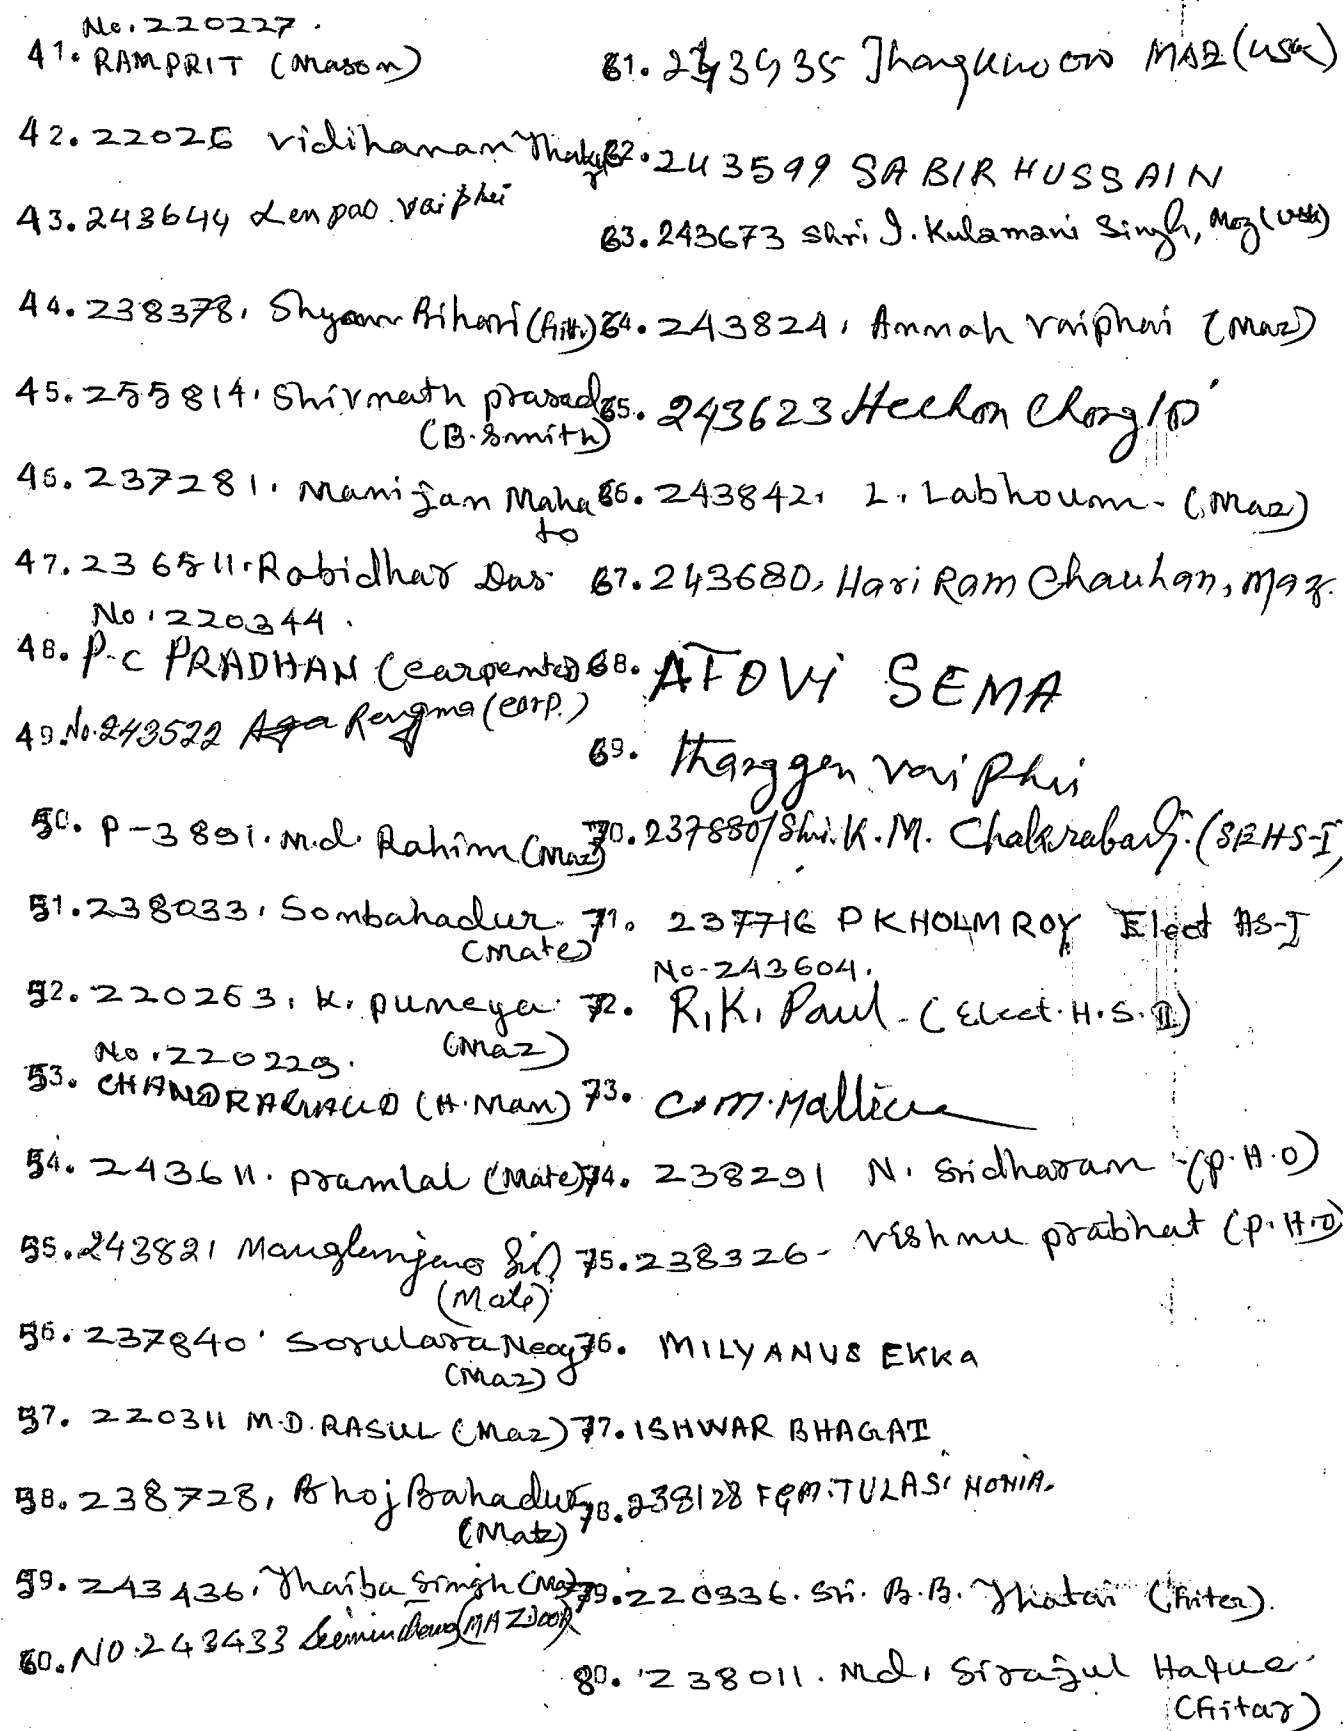 No. 220227.
41. RAMPRIT (Mason)
42. 22026 Vidihanan Thakur
43. 243644 Lenpao Vaiphei
44. 238378, Shyam Bihari (Fitt.)
45. 255814, Shivnath prasad
(B. Smith)
46. 237281, Manijan Maha
to
47. 236511. Rabidhar Das
No. 220344.
48. P.C PRADHAN (carpenter)
49. No. 243522 Aga Rengma (carp.)
50. P-3891. Md. Rahim (Maz)
51. 238033, Sombahadur
(Mate)
52. 220263, K. puneya
(Maz)
No. 220229.
53. (H. Man)
54. 243611. pramlal (Mate)
55. 243821
(Mate)
56. 237840 Sorulara Neog
(Maz)
57. 220311 M.D. RASUL (Maz)
58. 238728, Bhoj Bahadur
(Mate)
59. 243436, Thaiba Singh (Maz)
60. NO. 243433 (MAZDOOR)
61. 243935 MAZ (USK)
62. 243599 SABIR HUSSAIN
63. 243673 Shri I. Kulamani Singh, Maz (USK)
64. 243824, Annah Vaiphai (Maz)
65. 243623 Hechon Chonglo
66. 243842, L. Labhoum - (Maz)
67. 243680, Hari Ram Chauhan, Maz.
68. ATOVI SEMA
69. Thanggen Vaiphei
70. 237880/Shri. K.M. Chakrabarty. (SBHS-I)
71. 237716 P KHOLM ROY Elect HS-I
No-243604.
72. R.K. Paul - (Elect. H.S.II)
73. C.M. Mallick
74. 238291 N. Sridharam - (P.H.O)
75. 238326 - Vishnu prabhat (P.H.O)
76. MILYANUS EKKA
77. ISHWAR BHAGAT
78. 238128 FGM. TULASI NONIA.
79. 220336. Sri. B.B. Thatai (Fiter).
80. 238011. Md. Sirajul Haque
(Fitar)